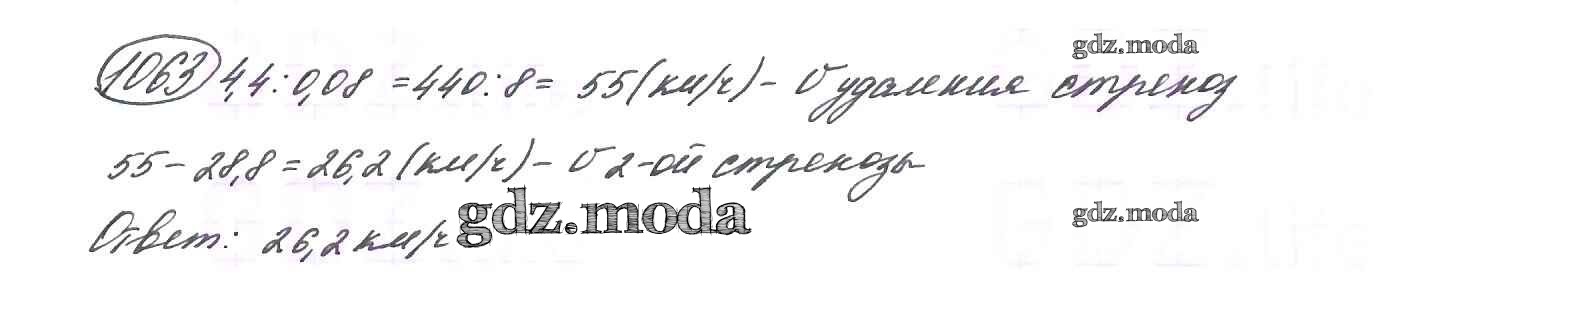 gdz.moda
1063 4,4 : 0,08 = 440 : 8 = 55 (км/ч) - v удаления стрекоз
55 - 28,8 = 26,2 (км/ч) - v 2-ой стрекозы
gdz.moda
gdz.moda
Ответ: 26,2 км/ч